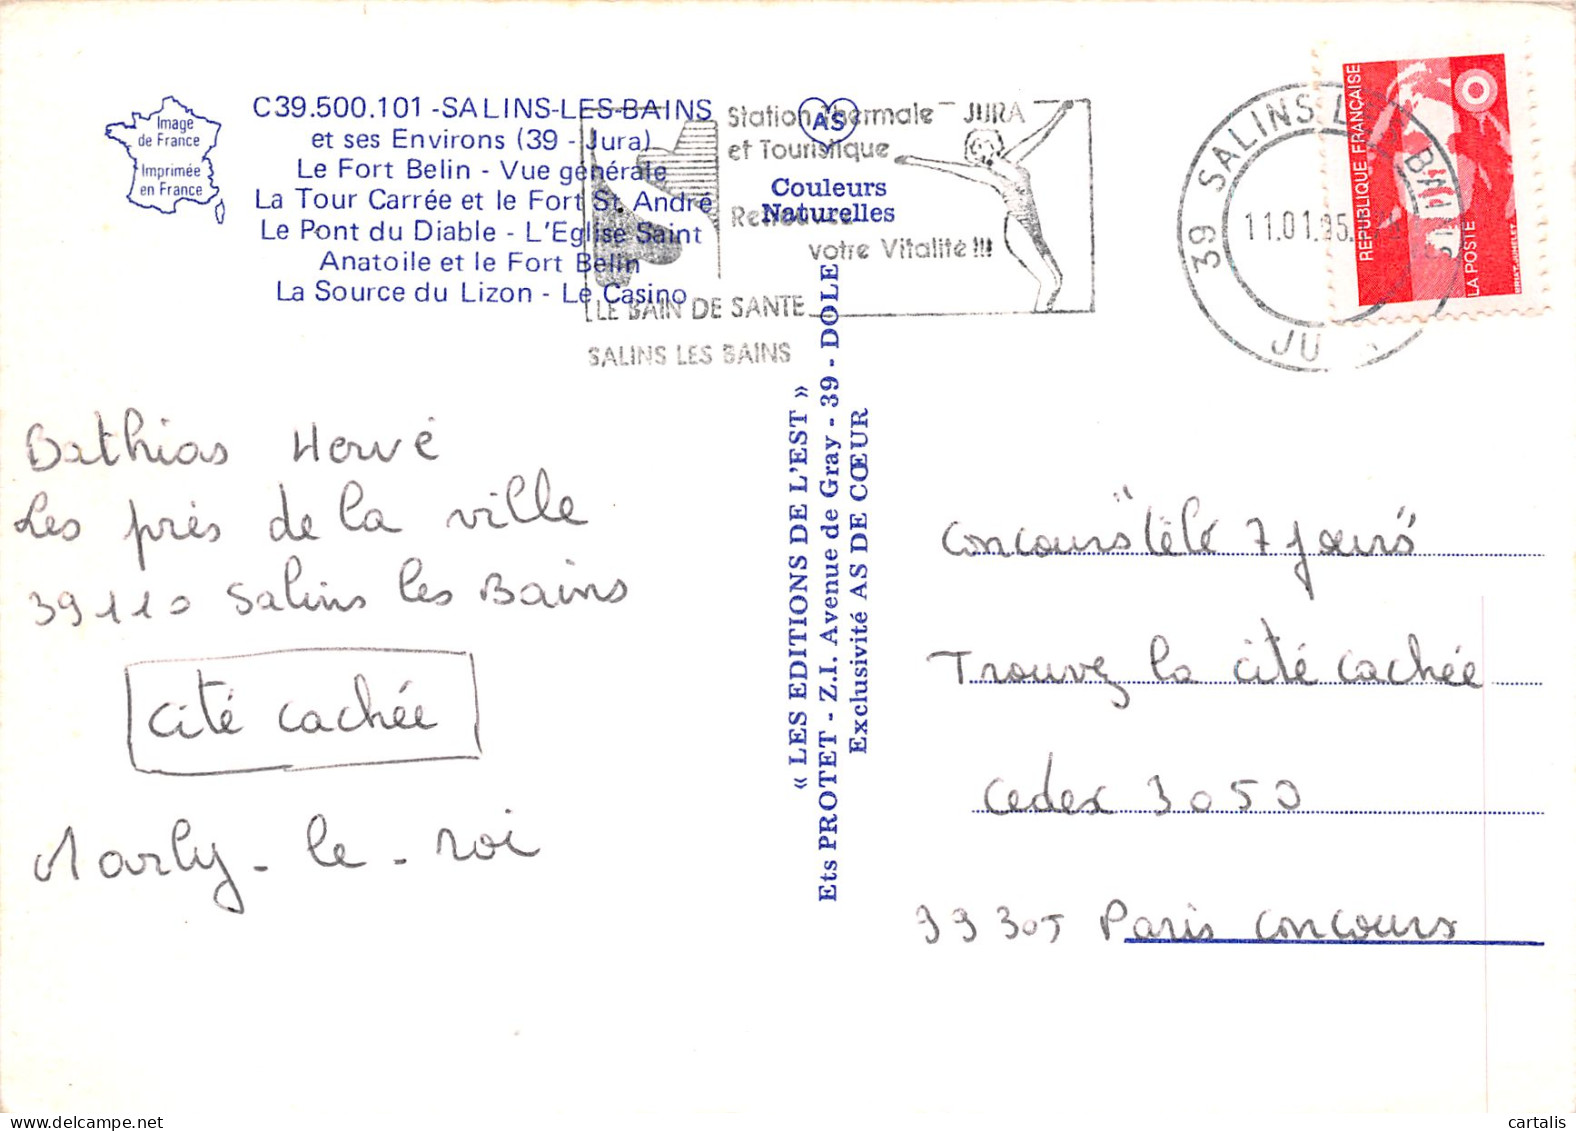 Image
de France
Imprimée
en France
C39.500.101 - SALINS-LES-BAINS
et ses Environs (39 - Jura)
Le Fort Belin - Vue générale
La Tour Carrée et le Fort St. André
Le Pont du Diable - L'Eglise Saint
Anatoile et le Fort Belin
La Source du Lizon - Le Casino
AS
Couleurs
Naturelles
Station Thermale JURA
et Touristique
votre Vitalité !!!
LE BAIN DE SANTE
SALINS LES BAINS
39 SALINS LES BAINS
11.01.95
JU
REPUBLIQUE FRANÇAISE
LA POSTE
BRIAT-JUMELET
« LES EDITIONS DE L'EST »
Ets PROTET - Z.I. Avenue de Gray - 39 - DOLE
Exclusivité AS DE CŒUR
Bathias Hervé
Les prés de la ville
39110 Salins les Bains
cité cachée
Marly-le-roi
concours "télé 7 jours"
Trouvez la cité cachée
cedex 3050
99305 Paris concours
cartalis